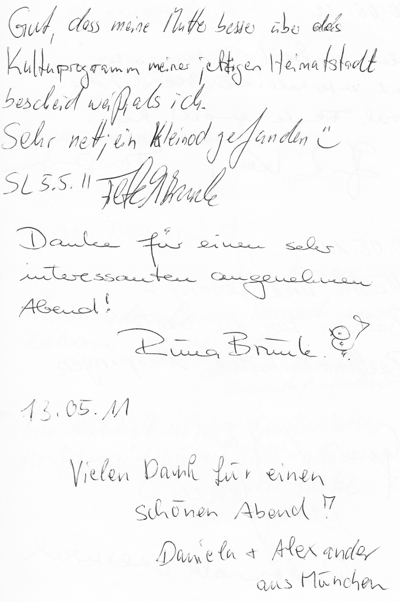 Gut, dass meine Mutter besser über das
Kulturprogramm meiner jetzigen Heimatstadt
bescheid weiß, als ich.
Sehr nett, ein Kleinod gefunden ☺
SL 5.5.11
Danke für einen sehr
interessanten angenehmen
Abend!
13.05.11
Vielen Dank für einen
schönen Abend!!
Daniela + Alexander
aus München